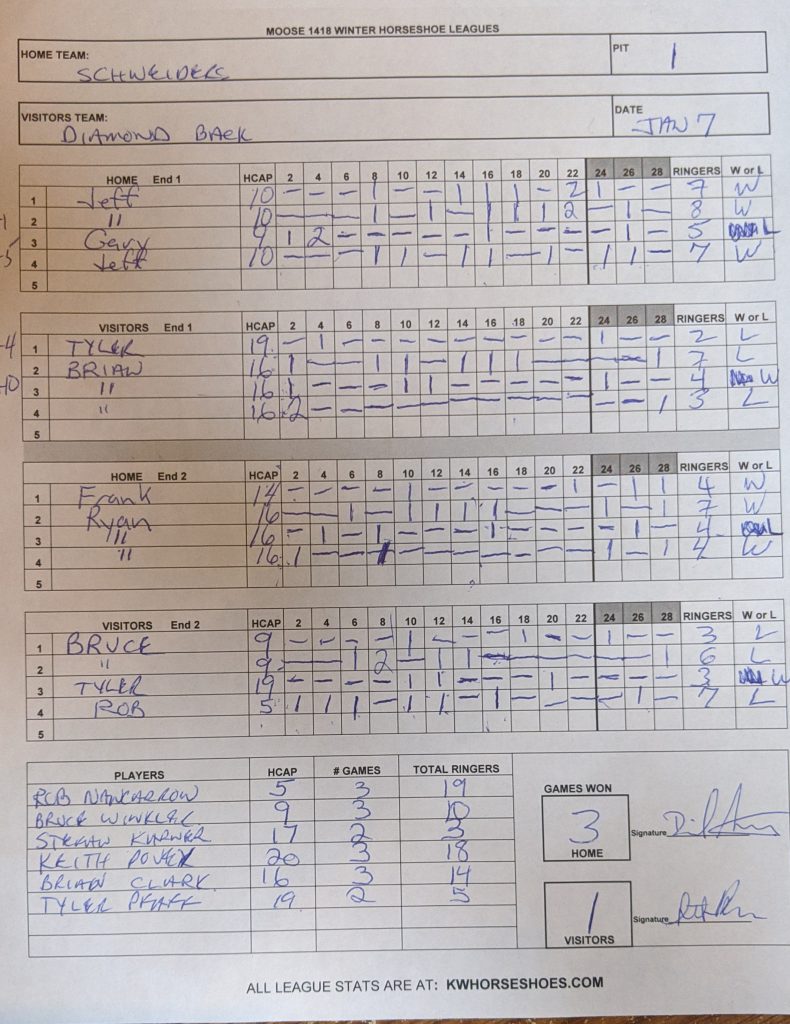 MOOSE 1418 WINTER HORSESHOE LEAGUES
HOME TEAM: SCHWEIDERS PIT 1
VISITORS TEAM: DIAMOND BACK DATE JAN 7
HOME End 1 HCAP 2 4 6 8 10 12 14 16 18 20 22 24 26 28 RINGERS W or L
1 Jeff 10 – – – 1 – – 1 1 1 – 2 1 – – 7 W
2 " 10 – – – 1 – 1 – 1 1 1 2 – 1 – 8 W
3 Gary 9 1 2 – – – – – 1 – – – – 1 – 5 L
4 Jeff 10 – – – 1 1 – 1 1 – 1 – 1 1 – 7 W
5
VISITORS End 1 HCAP 2 4 6 8 10 12 14 16 18 20 22 24 26 28 RINGERS W or L
1 TYLER 19 – 1 – – – – – – – – – 1 – – 2 L
2 BRIAN 16 1 – – 1 1 – 1 1 1 – – – – 1 7 L
3 " 16 1 – – – 1 1 – – – – – 1 – – 4 W
4 " 16 2 – – – – – – – – – – – – 1 3 L
5
HOME End 2 HCAP 2 4 6 8 10 12 14 16 18 20 22 24 26 28 RINGERS W or L
1 Frank 14 – – – – 1 – – – – – 1 – 1 1 4 W
2 Ryan 16 – – 1 – 1 1 1 1 – – – 1 – 1 7 W
3 " 16 – 1 – 1 – – – 1 – – – – 1 – 4 L
4 " 16 1 – – 1 – – – – – – – 1 – 1 4 W
5
VISITORS End 2 HCAP 2 4 6 8 10 12 14 16 18 20 22 24 26 28 RINGERS W or L
1 BRUCE 9 – – – – 1 – – – 1 – – 1 – – 3 L
2 " 9 – – 1 2 – 1 1 – – – – – – 1 6 L
3 TYLER 19 – – – – 1 1 – – – 1 – – – – 3 W
4 ROB 5 1 1 1 – 1 1 – 1 – – – – 1 – 7 L
5
PLAYERS HCAP # GAMES TOTAL RINGERS
ROB NANCARROW 5 3 19
BRUCE WINKLER 9 3 10
STEFAN 17 2 3
KEITH 20 3 18
BRIAN CLARK 16 3 14
TYLER PFAFF 19 2 5
GAMES WON
3
HOME
Signature
1
VISITORS
Signature
ALL LEAGUE STATS ARE AT: KWHORSESHOES.COM